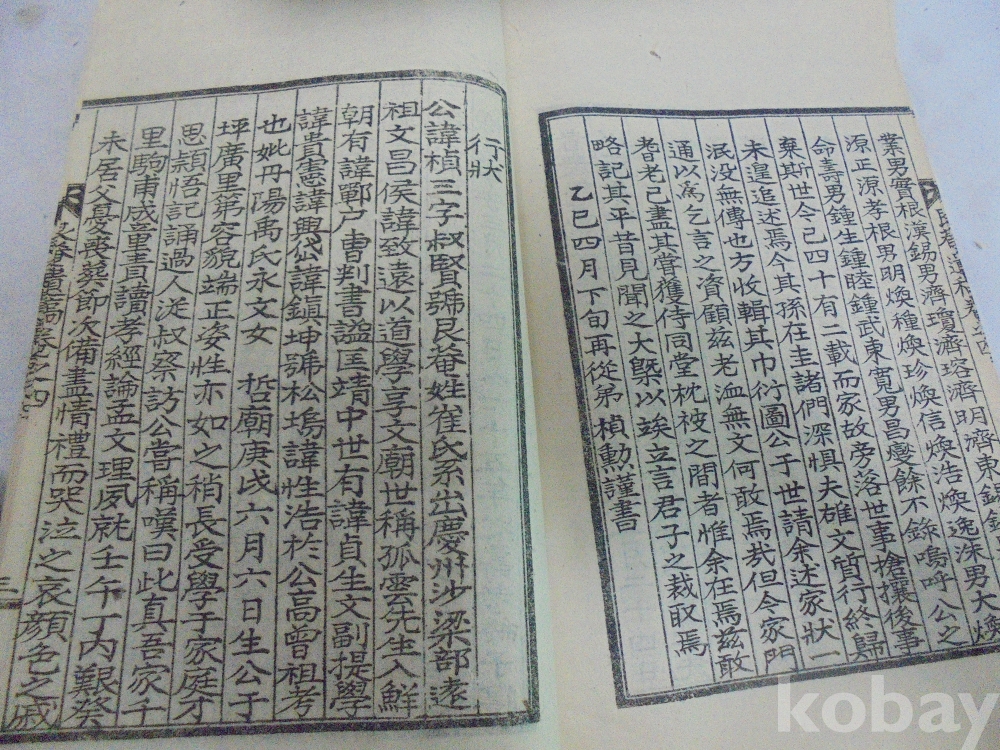 業男實根漢錫男濟瓊濟瑢濟明濟東錫
源正源孝根男明煥種煥珍煥信煥浩煥逸洙男大煥
命壽男鍾生鍾睦鍾武東寬男昌燮餘不錄嗚呼公之
棄斯世今已四十有二載而家故旁洛世事搶攘後事
未遑追述焉今其孫在圭諸們深惧夫雄文質行終歸
泯没無傳也方收輯其巾衍圖公于世請余述家狀一
通以為乞言之資顧玆老洫無文何敢焉我但令家門
耆老已盡其嘗獲侍同堂枕被之間者惟余在焉玆敢
略記其平昔見聞之大槩以俟立言君子之裁取焉
乙巳四月下旬再從弟 楨勳謹書
行狀
公諱楨三字叔賢號艮菴姓崔氏系出慶州沙梁部遠
祖文昌侯諱致遠以道學享文廟世稱孤雲先生入鮮
朝有諱鄲户曹判書謚匡靖中世有諱貞生文副提學
諱貴憲諱興岱諱鎭坤號松塢諱性浩於公高曾祖考
也妣丹陽禹氏永文女 哲廟庚戌六月六日生公于
坪廣里第容貌端正姿性亦如之稍長受學于家庭才
思穎悟記誦過人從叔察訪公嘗稱嘆曰此真吾家千
里駒甫成童書讀孝經論孟文理夙就壬午丁内艱癸
未居父憂喪葬節次備盡情禮而哭泣之哀顔色之戚
三
kobay